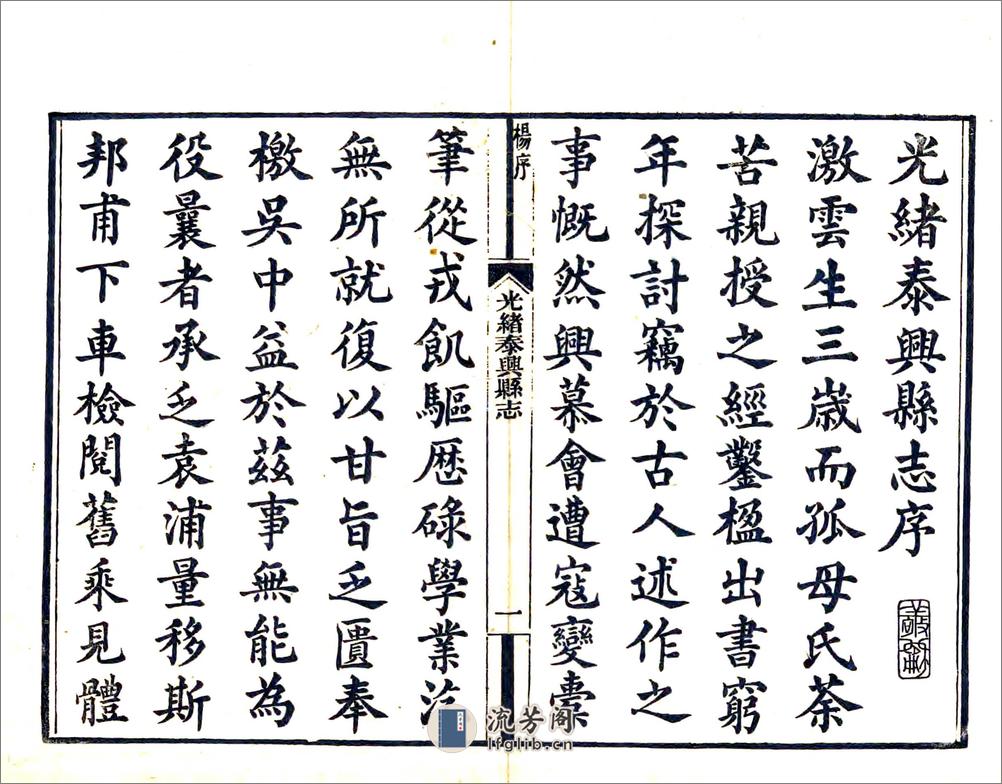 光緒泰興縣志序
激雲生三歲而孤母氏荼
苦親授之經鑿楹出書窮
年探討竊於古人述作之
事慨然興慕會遭寇變橐
楊序
光緒泰興縣志
一
筆從戎飢驅歷碌學業汔
無所就復以甘旨乏匱奉
檄吳中益於茲事無能為
役曩者承乏袁浦量移斯
邦甫下車檢閱舊乘見體
流芳阁
lfglib.cn